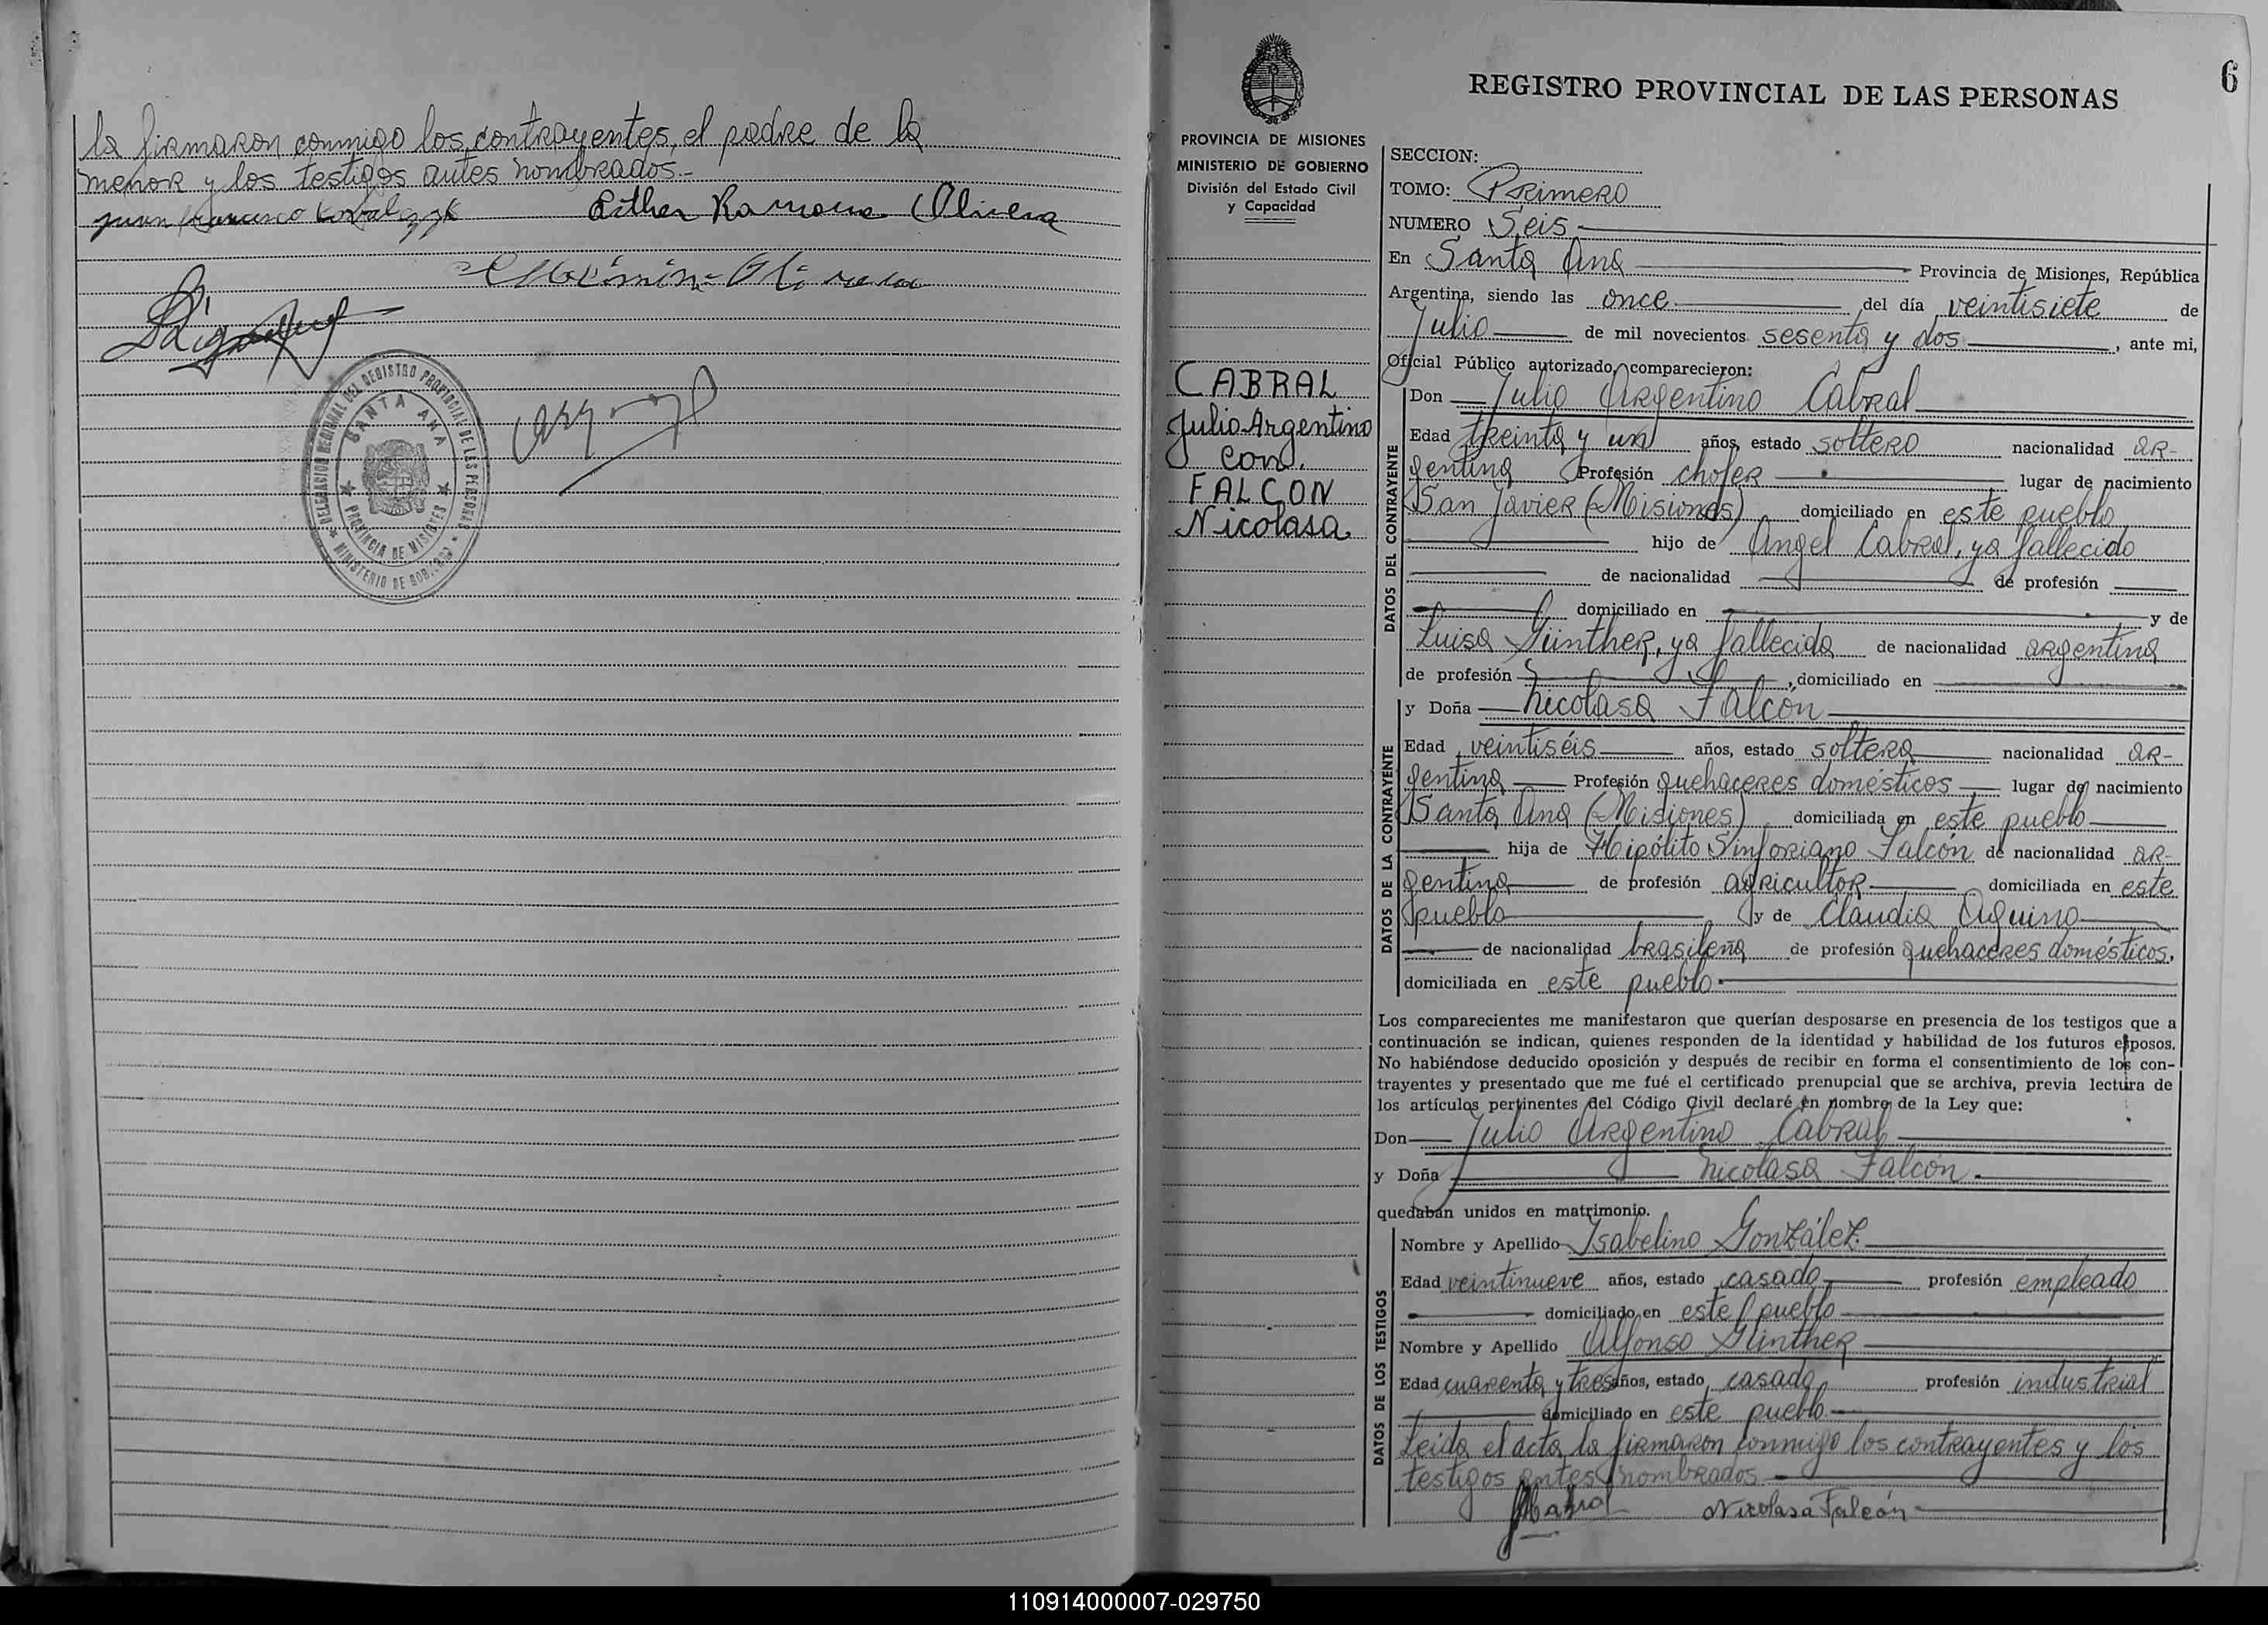 la firmaron conmigo los contrayentes, el padre de la
menor y los testigos antes nombrados.-
Juan Francisco
Esther Ramona Olivera
DELEGACION REGIONAL DEL REGISTRO PROVINCIAL DE LES PERSONAS
SANTA ANA
PROVINCIA DE MISIONES
MINISTERIO DE GOB.
6
REGISTRO PROVINCIAL DE LAS PERSONAS
PROVINCIA DE MISIONES
MINISTERIO DE GOBIERNO
División del Estado Civil
y Capacidad
CABRAL
Julio Argentino
con
FALCON
Nicolasa
SECCION:
TOMO: Primero
NUMERO Seis
En Santa Ana Provincia de Misiones, República
Argentina, siendo las once del día veintisiete de
Julio de mil novecientos sesenta y dos, ante mi,
Oficial Público autorizado, comparecieron:
DATOS DEL CONTRAYENTE
Don Julio Argentino Cabral
Edad treinta y un años, estado soltero nacionalidad ar-
gentina Profesión chofer lugar de nacimiento
San Javier (Misiones) domiciliado en este pueblo
hijo de Angel Cabral, ya fallecido
de nacionalidad de profesión
domiciliado en y de
Luisa Günther, ya fallecida de nacionalidad argentina
de profesión , domiciliado en
DATOS DE LA CONTRAYENTE
y Doña Nicolasa Falcón
Edad veintiséis años, estado soltera nacionalidad ar-
gentina Profesión quehaceres domésticos lugar de nacimiento
Santa Ana (Misiones) domiciliada en este pueblo
hija de Hipólito Sinforiano Falcón de nacionalidad ar-
gentina de profesión agricultor domiciliada en este
pueblo y de Claudia Aquino
de nacionalidad brasileña de profesión quehaceres domésticos,
domiciliada en este pueblo.
Los comparecientes me manifestaron que querían desposarse en presencia de los testigos que a
continuación se indican, quienes responden de la identidad y habilidad de los futuros esposos.
No habiéndose deducido oposición y después de recibir en forma el consentimiento de los con-
trayentes y presentado que me fué el certificado prenupcial que se archiva, previa lectura de
los artículos pertinentes del Código Civil declaré en nombre de la Ley que:
Don Julio Argentino Cabral
y Doña Nicolasa Falcón.
quedaban unidos en matrimonio.
DATOS DE LOS TESTIGOS
Nombre y Apellido Isabelino González.
Edad veintinueve años, estado casado profesión empleado
domiciliado en este pueblo
Nombre y Apellido Alfonso Günther
Edad cuarenta y tres años, estado casado profesión industrial
domiciliado en este pueblo.
Leída el acta, la firmaron conmigo los contrayentes y los
testigos antes nombrados.
Cabral Nicolasa Falcón
110914000007-029750